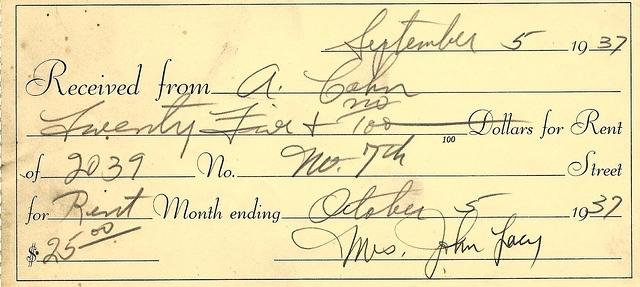 September 5 1937
Received from A. Cohn
Twenty Five + no/100 Dollars for Rent
100
of 2039 No. No. 7th Street
for Rent Month ending October 5 1937
$ 25.00 Mrs. John Lacy